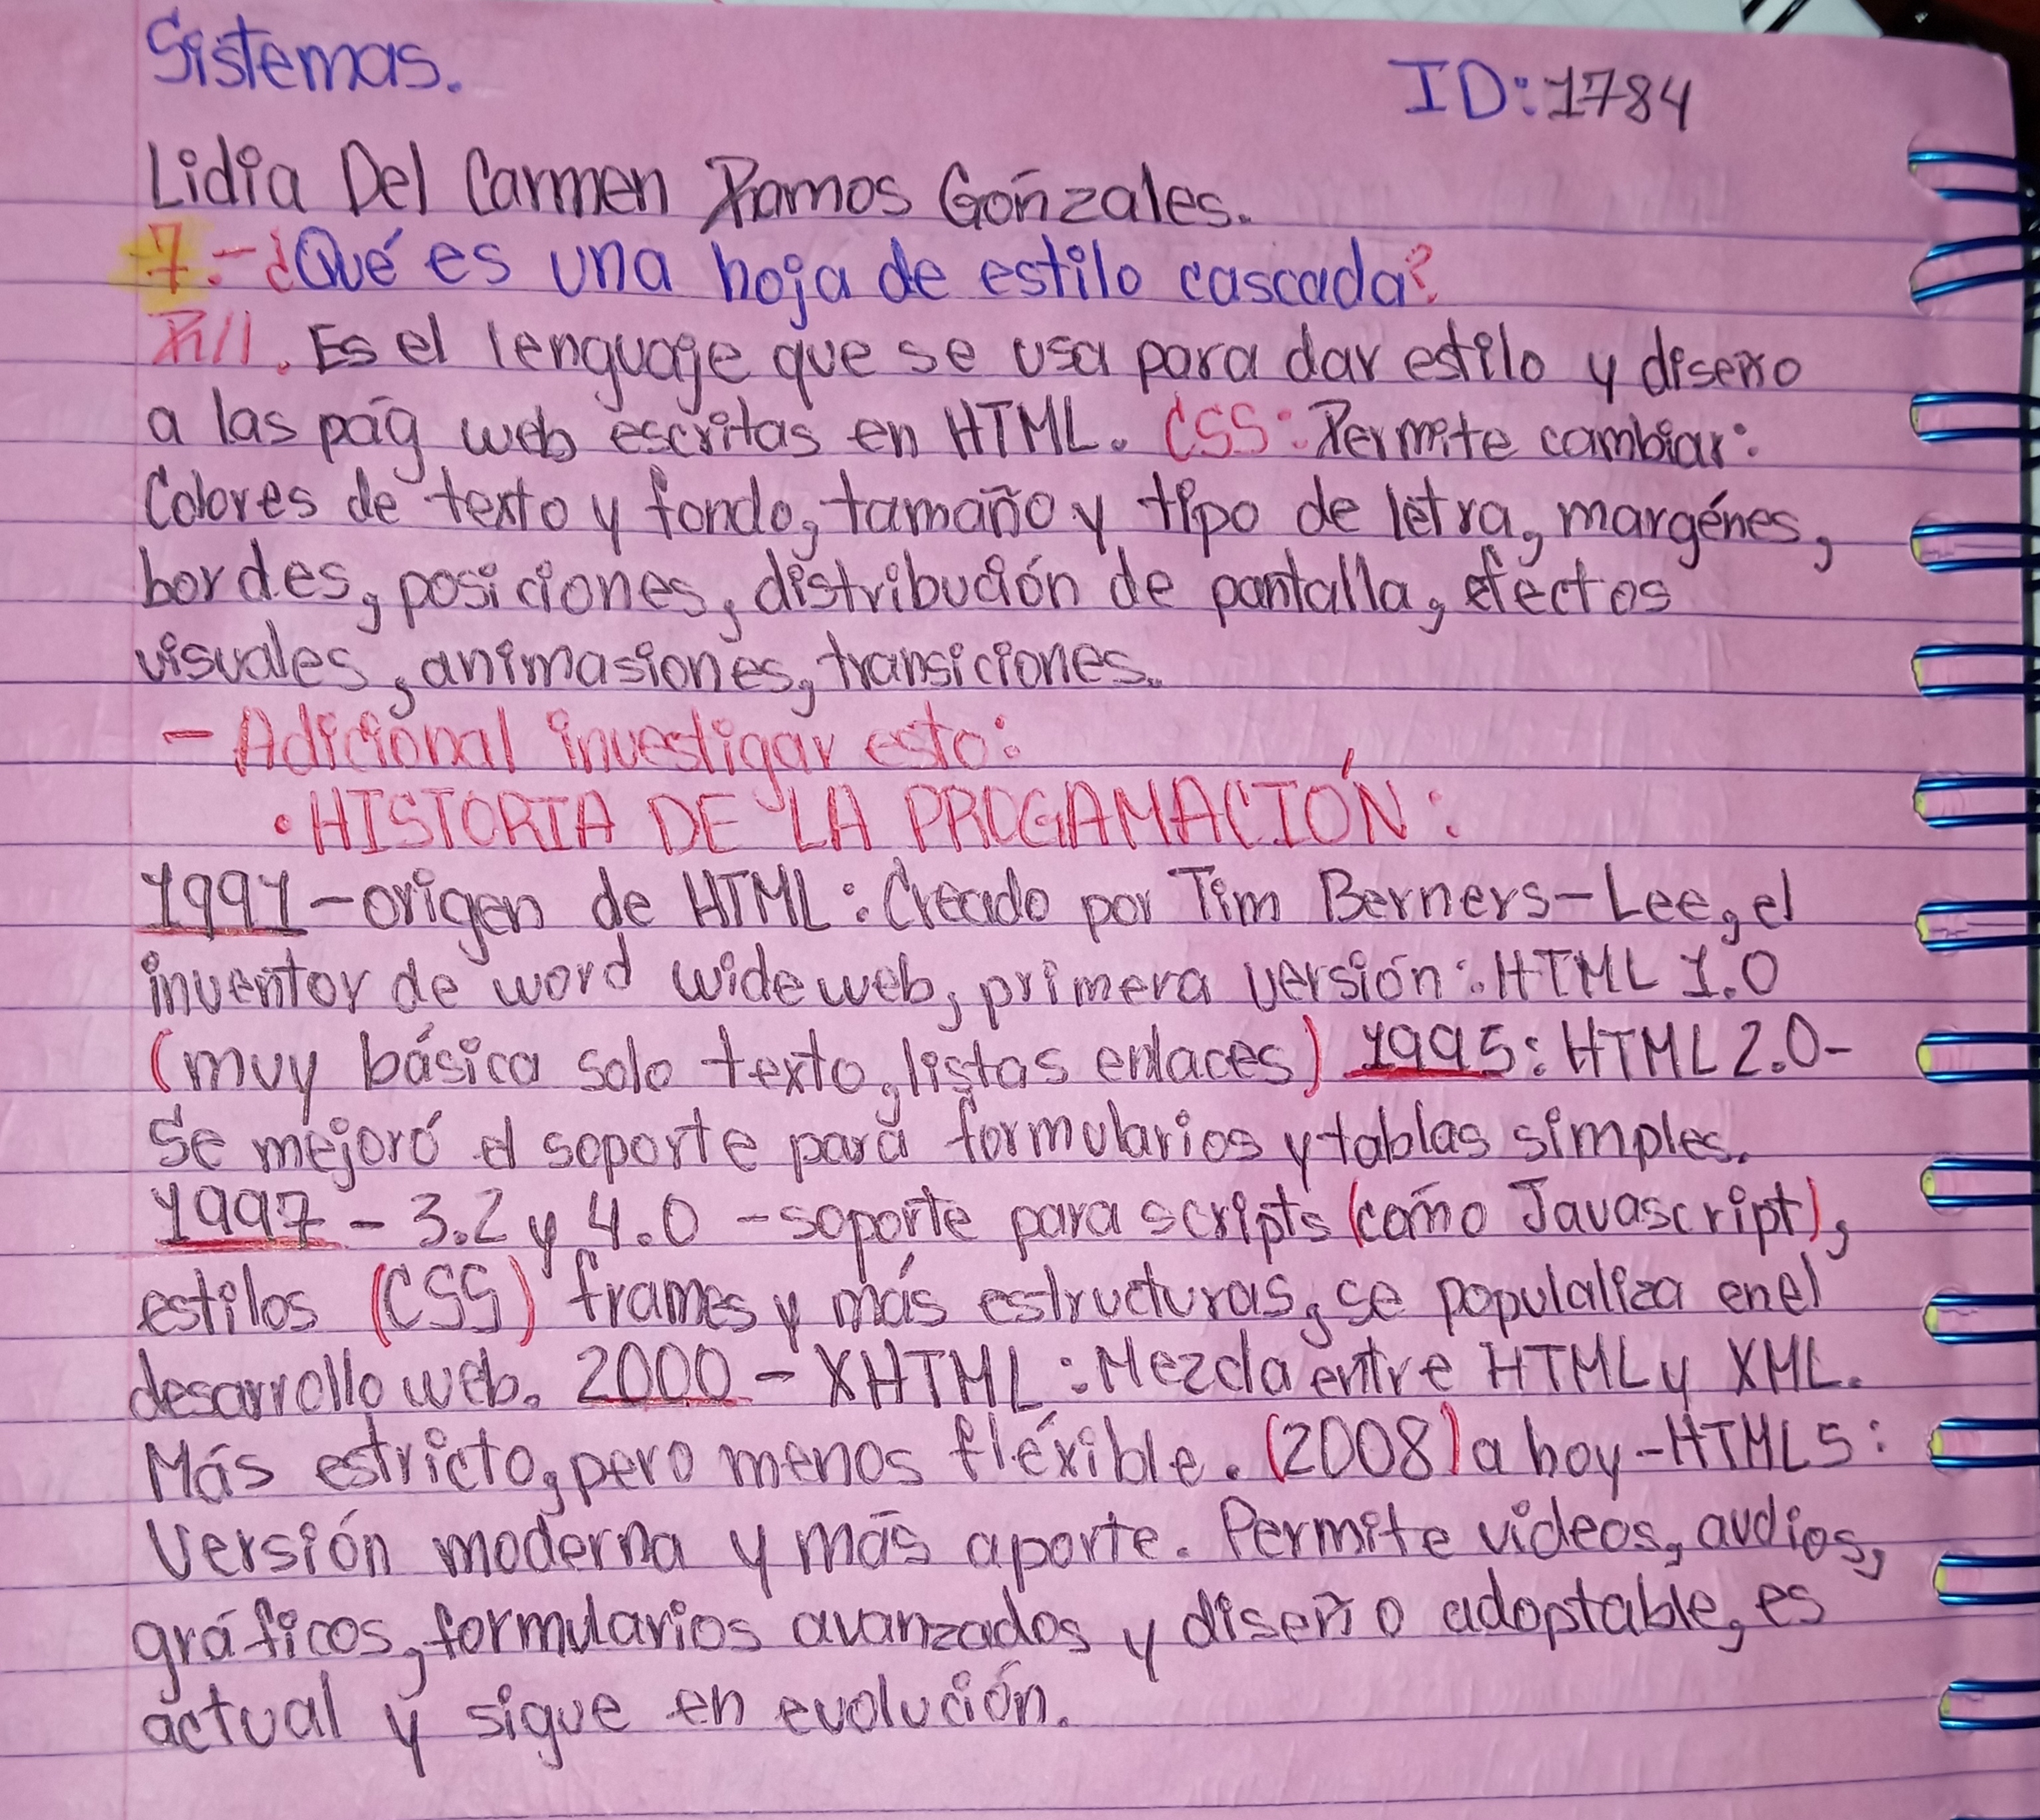 Sistemas.
ID: 1784
Lidia Del Carmen Ramos Gonzales.
7.- ¿Qué es una hoja de estilo cascada?
R//. Es el lenguaje que se usa para dar estilo y diseño
a las pág web escritas en HTML. CSS: Permite cambiar:
Colores de texto y fondo, tamaño y tipo de letra, margénes,
bordes, posiciones, distribución de pantalla, efectos
visuales, animasiones, transiciones.
- Adicional investigar esto:
• HISTORIA DE LA PROGAMACIÓN:
1991 - origen de HTML: Creado por Tim Berners-Lee, el
inventor de word wide web, primera versión: HTML 1.0
(muy básica solo texto, listas enlaces) 1995: HTML 2.0-
Se mejoró el soporte para formularios y tablas simples.
1997 - 3.2 y 4.0 - soporte para scripts (como Javascript),
estilos (CSS) frames y más estructuras, se populaliza en el
desarrollo web. 2000 - XHTML: Mezcla entre HTML y XML.
Más estricto, pero menos fléxible. (2008) a hoy - HTML5:
Versión moderna y más aporte. Permite videos, audios,
gráficos, formularios avanzados y diseño adoptable, es
actual y sigue en evolución.